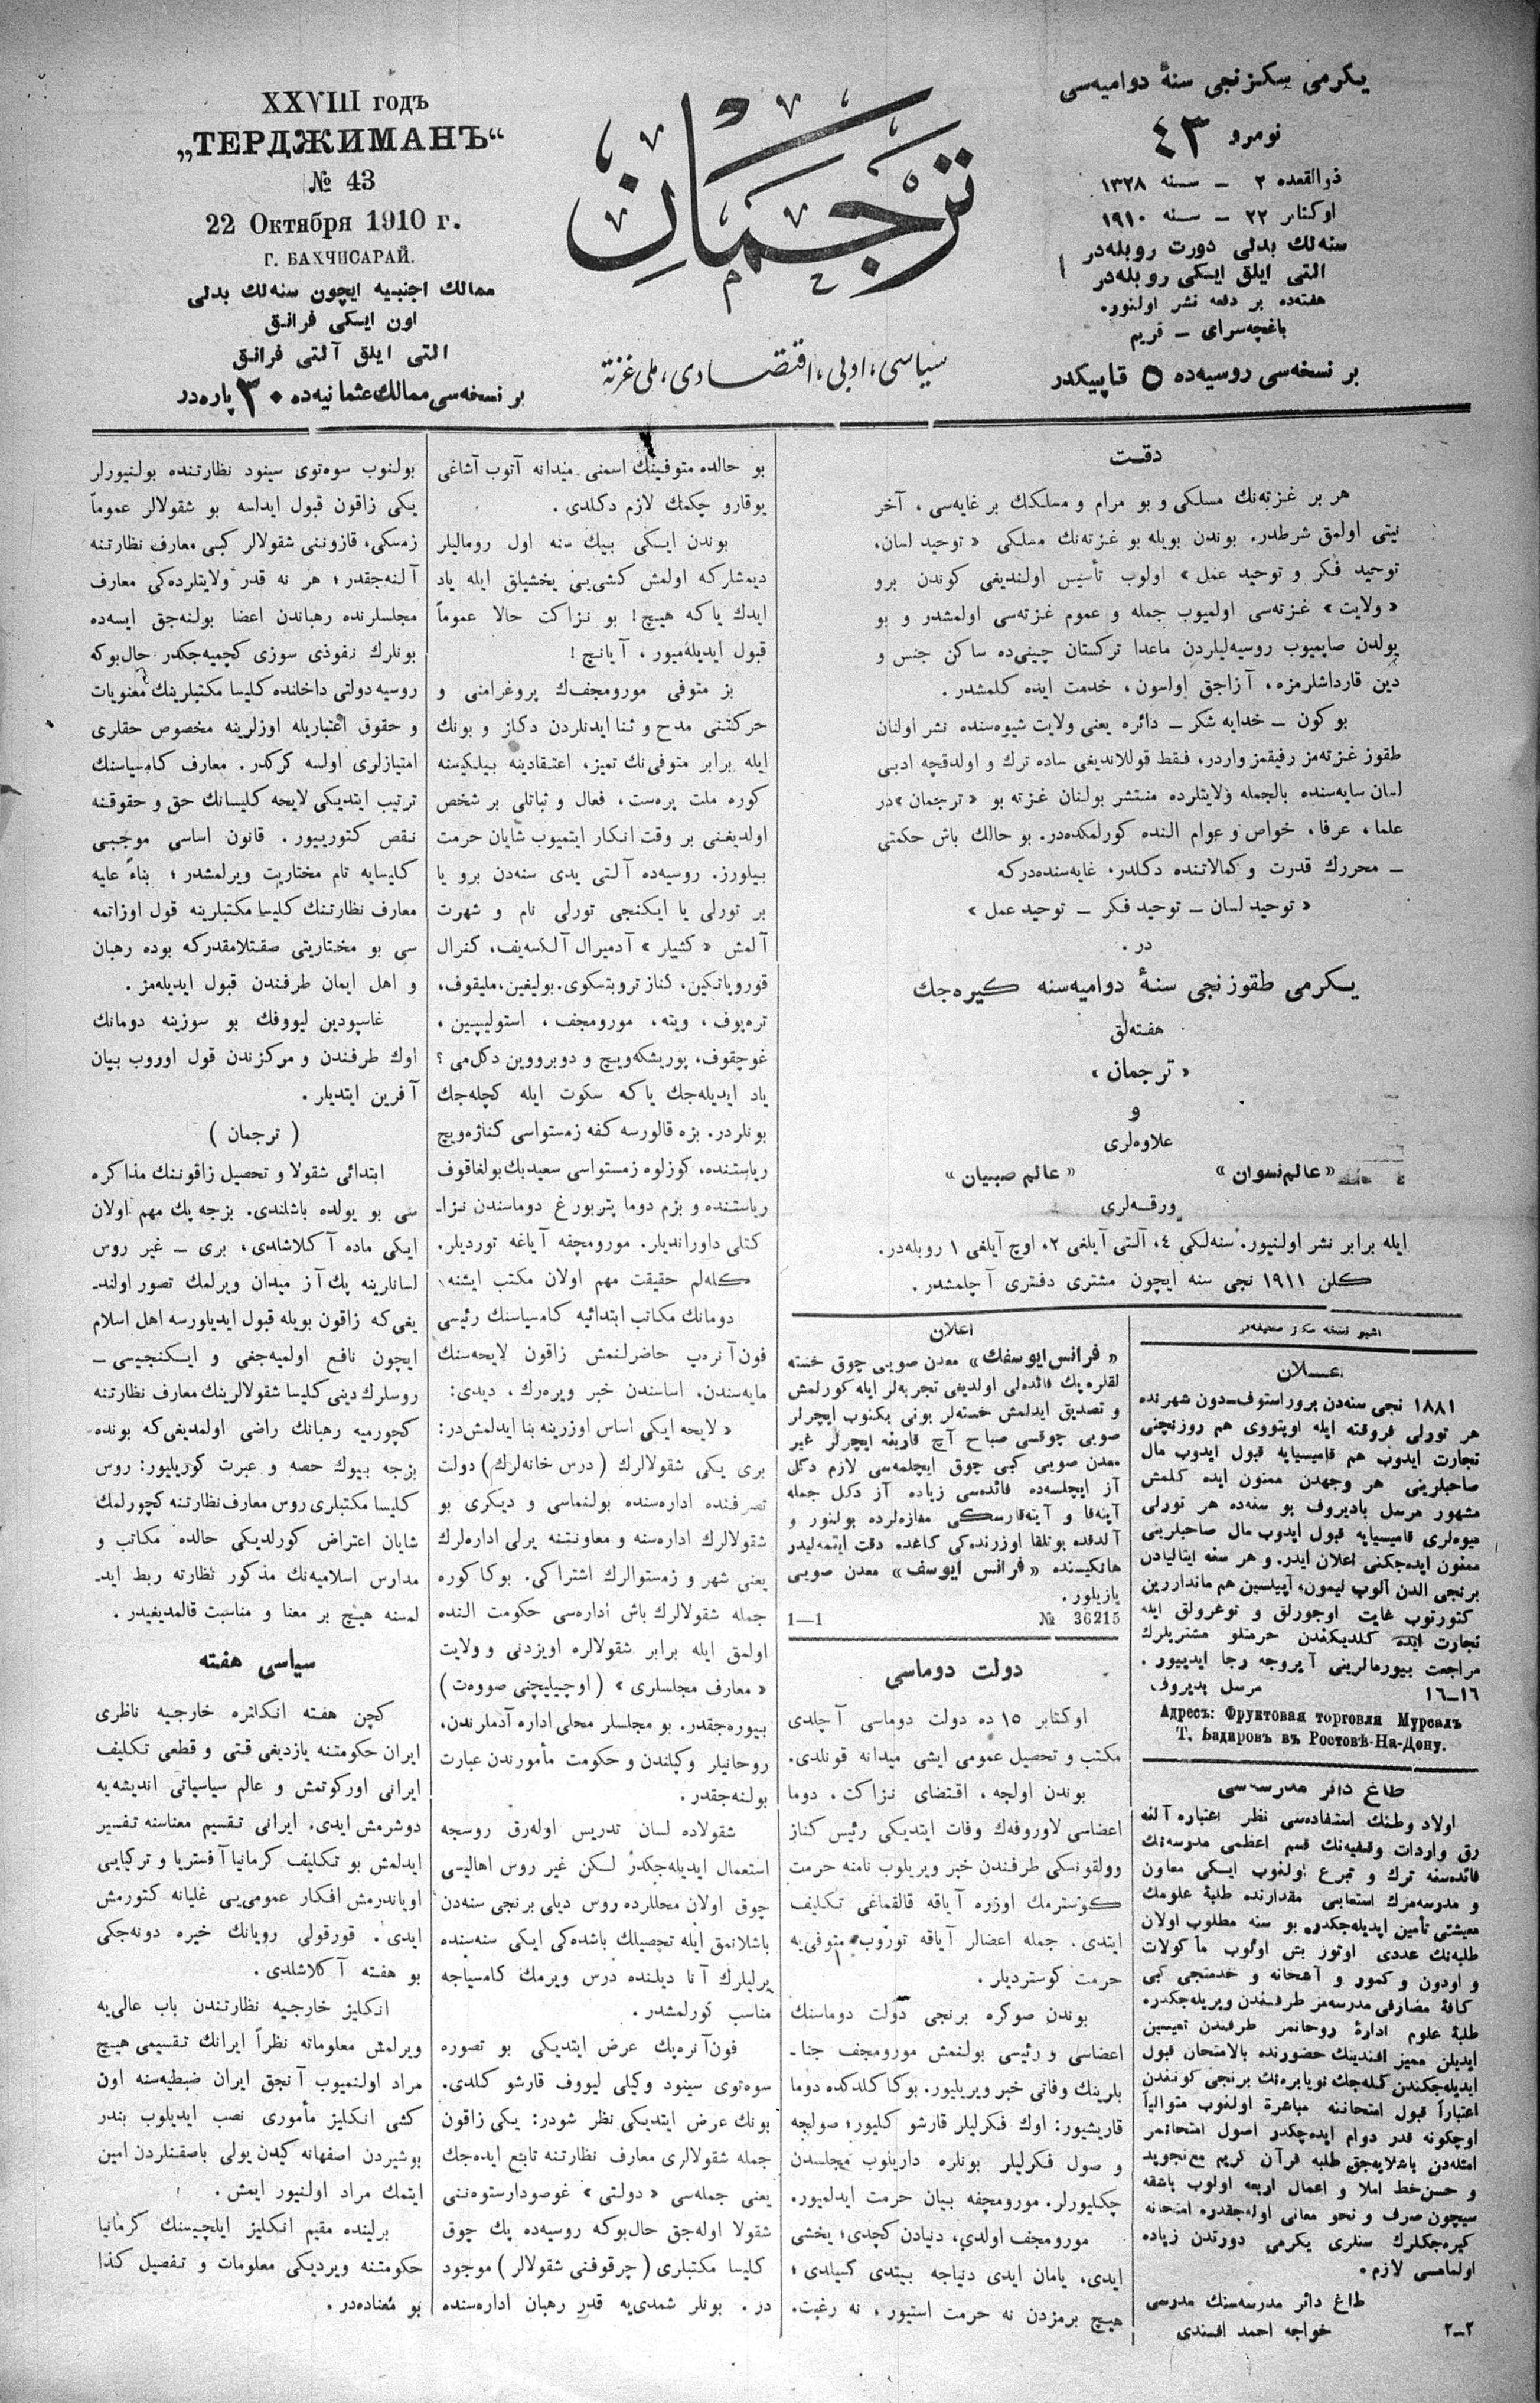 يكرمی سكزنجی سنهٔ دواميه‌سی
نومرو ٤٣
ذوالقعده ٢ – سنه ١٣٢٨
اوكتابر ٢٢ – سنه ١٩١٠
سنه‌لك بدلی دورت روبله‌در
التی ايلق ايكی روبله‌در
هفته‌ده بر دفعه نشر اولنور.
باغچه‌سرای – قريم
بر نسخه‌سی روسيه‌ده ٥ قاپيكدر
ترجمان
سياسی، ادبی، اقتصادی، ملی غزته
XXVIII годъ
„ТЕРДЖИМАНЪ“
№ 43
22 Октября 1910 г.
Г. БАХЧИСАРАЙ.
ممالك اجنبيه ايچون سنه‌لك بدلی
اون ايكی فرانق
التی ايلق آلتی فرانق
بر نسخه‌سی ممالك عثمانيه‌ده ٣٠ پاره‌در
دقت
هر بر غزته‌نك مسلكی و بو مرام و مسلكك بر غايه‌سی، آخر
نيتی اولمق شرطدر. بوندن بويله بو غزته‌نك مسلكی « توحيد لسان،
توحيد فكر و توحيد عمل » اولوب تأسيس اولنديغی كوندن برو
« ولايت » غزته‌سی اولميوب جمله و عموم غزته‌سی اولمشدر و بو
يولدن صاپميوب روسيه‌ليلردن ماعدا تركستان چينی‌ده ساكن جنس و
دين قارداشلرمزه، آزاجق اولسون، خدمت ايده كلمشدر.
بو كون – خدايه شكر – دائره يعنی ولايت شيوه‌سنده نشر اولنان
طقوز غزته‌مز رفيقمز واردر، فقط قوللانديغی ساده ترك و اولدقچه ادبی
لسان سايه‌سنده بالجمله ولايتلرده منتشر بولنان غزته بو « ترجمان »در
علما، عرفا، خواص و عوام النده كورلمكده‌در. بو حالك باش حكمتی
– محررك قدرت و كمالاتنده دكلدر، غايه‌سنده‌دركه
« توحيد لسان – توحيد فكر – توحيد عمل »
در.
يكرمی طقوزنجی سنهٔ دواميه‌سنه كيره‌جك
هفته‌لق
« ترجمان »
و
علاوه‌لری
« عالم نسوان » « عالم صبيان »
ورقه‌لری
ايله برابر نشر اولنيور. سنه‌لكی ٤، آلتی آيلغی ٢، اوچ آيلغی ١ روبله‌در.
كلن ١٩١١ نجی سنه ايچون مشتری دفتری آچلمشدر.
اشبو نسخه سكز صحيفه‌در
اعلان
١٨٨١ نجی سنه‌دن برو راستوف–دون شهرنده
هر تورلی فروقته ايله اوپتووی هم روزنچنی
تجارت ايدوب هم قاميسيايه قبول ايدوب مال
صاحبلرينی هر وجهدن ممنون ايده كلمش
مشهور مرسل باديروف بو سنه‌ده هر تورلی
ميوه‌لری قاميسيايه قبول ايدوب مال صاحبلرينی
ممنون ايده‌جكنی اعلان ايدر. و هر سنه ايتاليادن
برنجی الدن آلوب ليمون، آپيلسين هم ماندارين
كتورتوب غايت اوجورلق و توغرولق ايله
تجارت ايده كلديكندن حرمتلو مشتريلرك
مراجعت بيورمالرينی آيروجه رجا ايدييور.
١٦–١٦ مرسل بديروف
Адресъ: Фруктовая торговля Мурсалъ
Т. Бадировъ въ Ростовѣ-На-Дону.
طاغ دائر مدرسه‌سی
اولاد وطنك استفاده‌سی نظر اعتباره آلنه
رق واردات وقفيه‌نك قسم اعظمی مدرسه‌نك
فائده‌سنه ترك و تبرع اولنوب ايكی معاون
و مدرسه‌مزك استعابی مقدارنده طلبهٔ علومك
معيشتی تأمين ايديله‌جكدر. بو سنه مطلوب اولان
طلبه‌نك عددی اوتوز بش اولوب مأكولات
و اودون و كمور و آشخانه و خدمتجی كبی
كافهٔ مصارفی مدرسه‌مز طرفندن ويريله‌جكدر.
طلبهٔ علوم ادارهٔ روحانمز طرفندن تعيين
ايديلن مميز افندينك حضورنده بالامتحان قبول
ايديله‌جكندن كله‌جك نويابره‌نك برنجی كونندن
اعتباراً قبول امتحاننه مباشرة اولنوب متوالياً
اوچ‌كونه قدر دوام ايده‌چكدر اصول امتحانمز
امثله‌دن باشلايه‌جق طلبه قرآن كريم مع‌تجويد
و حسن‌خط املا و اعمال اربعه اولوب باشقه
سيچون صرف و نحو معانی اوله‌جقدر. امتحانه
كيره‌جكلرك سنلری يكرمی دورتدن زياده
اولمامسی لازم.
طاغ دائر مدرسه‌سنك مدرسی
٢–٢ خواجه احمد افندی
اعلان
« فرانس ايوسفك » معدن صويی چوق خسته
لقلره پك فائده‌لی اولديغی تجربه‌لر ايله كورلمش
و تصديق ايدلمش خسته‌لر بونی بكنوب ايچرلر
صويی چوقسی صباح آچ قارينه ايچرلر غير
معدن صويی كبی چوق ايچلمه‌سی لازم دكل
آز ايچلسه‌ده فائده‌سی زياده آز دكل جمله
آپته‌قا و آپته‌قارسكی مغازه‌لرده بولنور و
آلدقده بوتلقا اوزرنده‌كی كاغده دقت ايتمه‌ليدر
هانكيسنده « فرانس ايوسف » معدن صويی
يازيلور.
№ 36215 1—1
دولت دوماسی
اوكتابر ١٥ ده دولت دوماسی آچلدی
مكتب و تحصيل عمومی ايشی ميدانه قونلدی.
بوندن اولجه، اقتضای نزاكت، دوما
اعضاسی لاوروفه‌ك وفات ايتديكی رئيس كناز
وولقونسكی طرفندن خبر ويريلوب نامنه حرمت
كوسترمك اوزره آياقه قالقماغی تكليف
ايتدی. جمله اعضالر آياقه توروب متوفی‌يه
حرمت كوسترديلر.
بوندن صوكره برنجی دولت دوماسنك
اعضاسی و رئيسی بولنمش مورومجف جنا-
بلرينك وفاتی خبر ويريليور. بوكا كلدكده دوما
قاريشيور: اوك فكرليلر قارشو كليور؛ صولجه
و صول فكرليلر بونلره داريلوب مجلسدن
چكليورلر. مورومجفه بيان حرمت ايدلميور.
مورومجف اولدی، دنيادن كچدی؛ يخشی
ايدی، يامان ايدی دنياجه بيتدی كسيلدی؛
هيچ برمزدن نه حرمت استيور، نه رغبت.
بو حالده متوفينك اسمنی ميدانه آتوب آشاغی
يوقارو چكمك لازم دكلدی.
بوندن ايكی بيك سنه اول روماليلر
ديمشلركه اولمش كشی‌يی يخشيلق ايله ياد
ايدك ياكه هيچ! بو نزاكت حالا عموماً
قبول ايديله‌ميور، آيانچ!
بز متوفی مورومجفك پروغرامنی و
حركتنی مدح و ثنا ايدنلردن دكلز و بونك
ايله برابر متوفی‌نك تميز، اعتقادينه بيلكيسنه
كوره ملت پره‌ست، فعال و ثباتلی بر شخص
اولديغنی بر وقت انكار ايتميوب شايان حرمت
بيلورز. روسيه‌ده آلتی يدی سنه‌دن برو يا
بر تورلی يا ايكنجی تورلی نام و شهرت
آلمش « كشيلر » آدميرال آلكسه‌يف، كنرال
قوروپاتكين، كناز تروبتسكوی. بوليغين، مليقوف،
تره‌پوف، ويته، مورومجف، استوليپين،
غوچقوف، پوريشكه‌ويچ و دوبرووين دكل‌می؟
ياد ايديله‌جك ياكه سكوت ايله كچله‌جك
بونلردر. بزه قالورسه كفه زمستواسی كنازه‌ويچ
رياستنده، كوزلوه زمستواسی سعيدبك بولغاقوف
رياستنده و بزم دوما پتربورغ دوماسندن نزا-
كتلی داورانديلر. مورومجفه آياغه تورديلر.
كله‌لم حقيقت مهم اولان مكتب ايشنه
دومانك مكاتب ابتدائيه كاميساسنك رئيسی
فون آنره‌پ حاضرلنمش زاقون لايحه‌سنك
مايه‌سندن، اساسندن خبر ويره‌رك، ديدی:
« لايحه ايكی اساس اوزرينه بنا ايدلمش‌در:
بری يكی شقولالرك (درس خانه‌لرك) دولت
تصرفنده اداره‌سنده بولنماسی و ديكری بو
شقولالرك اداره‌سنه و معاونتنه يرلی اداره‌لرك
يعنی شهر و زمستوالرك اشتراكی. بوكا كوره
جمله شقولالرك باش اداره‌سی حكومت النده
اولمق ايله برابر شقولالره اويزدنی و ولايت
« معارف مجلسلری » (اوچيليچنی صووه‌ت)
بيوره‌جقدر. بو مجلسلر محلی اداره آدملرندن،
روحانيلر وكيلندن و حكومت مأمورندن عبارت
بولنه‌جقدر.
شقولاده لسان تدريس اوله‌رق روسجه
استعمال ايديله‌جكدر لكن غير روس اهاليسی
چوق اولان محللرده روس ديلی برنجی سنه‌دن
باشلانمق ايله تحصيلك باشده‌كی ايكی سنه‌سنده
يرليلرك آنا ديلنده درس ويرمك كامسياجه
مناسب كورلمشدر.
فون آنره‌پك عرض ايتديكی بو تصوره
سوه‌توی سينود وكيلی ليووف قارشو كلدی.
بونك عرض ايتديكی نظر شودر: يكی زاقون
جمله شقولالری معارف نظارتنه تابع ايده‌جك
يعنی جمله‌سی « دولتی » غوصودارستوه‌ننی
شقولا اوله‌جق حال‌بوكه روسيه‌ده پك چوق
كليسا مكتبلری (چرقوفنی شقولالر) موجود
در. بونلر شمدی‌يه قدر رهبان اداره‌سنده
بولنوب سوه‌توی سينود نظارتنده بولنيورلر
يكی زاقون قبول ايدلسه بو شقولالر عموماً
زمسكی، قازوننی شقولالر كبی معارف نظارتنه
آلنه‌جقدر؛ هر نه قدر ولايتلرده‌كی معارف
مجلسلرنده رهباندن اعضا بولنه‌جق ايسه‌ده
بونلرك نفوذی سوزی كچميه‌جكدر حال‌بوكه
روسيه دولتی داخلنده كليسا مكتبلرينك معنويات
و حقوق اعتباريله اوزلرينه مخصوص حقلری
امتيازلری اولسه كركدر. معارف كامسياسنك
ترتيب ايتديكی لايحه كليسانك حق و حقوقنه
نقص كتورييور. قانون اساسی موجبی
كليسايه تام مختاريت ويرلمشدر؛ بناءً عليه
معارف نظارتنك كليسا مكتبلرينه قول اوزاتمه
سی بو مختاريتی صقتلامقدركه بوده رهبان
و اهل ايمان طرفندن قبول ايديله‌مز.
غاسپودين ليووفك بو سوزينه دومانك
اوك طرفندن و مركزندن قول اوروب بيان
آفرين ايتديلر.
( ترجمان )
ابتدائی شقولا و تحصيل زاقوننك مذاكره
سی بو يولده باشلندی. بزجه پك مهم اولان
ايكی ماده آكلاشلدی، بری – غير روس
لسانلرينه پك آز ميدان ويرلمك تصور اولند-
يغی‌كه زاقون بويله قبول ايديلورسه اهل اسلام
ايچون نافع اولميه‌جغی و ايكنجيسی –
روسلرك دينی كليسا شقولالرينك معارف نظارتنه
كچورميه رهبانك راضی اولمديغی‌كه بونده
بزجه بيوك حصه و عبرت كوريليور: روس
كليسا مكتبلری روس معارف نظارتنه كچورلمك
شايان اعتراض كورلديكی حالده مكاتب و
مدارس اسلاميه‌نك مذكور نظارته ربط ايد-
لمسنه هيچ بر معنا و مناسبت قالمديغيدر.
سياسی هفته
كچن هفته انكلتره خارجيه ناظری
ايران حكومتنه يازديغی قتی و قطعی تكليف
ايرانی اوركوتمش و عالم سياسياتی انديشه‌يه
دوشرمش ايدی. ايرانی تقسيم معناسنه تفسير
ايدلمش بو تكليف كرمانيا آفستريا و تركيايی
اوياندرمش افكار عمومی‌يی غليانه كتورمش
ايدی. قورقولی رويانك خيره دونه‌جكی
بو هفته آكلاشلدی.
انكليز خارجيه نظارتندن باب عالی‌يه
ويرلمش معلوماته نظراً ايرانك تقسيمی هيچ
مراد اولنميوب آنجق ايران ضبطيه‌سنه اون
كشی انكليز مأموری نصب ايديلوب بندر
بوشيردن اصفهانه كيدن يولی باصقنلردن امين
ايتمك مراد اولنيور ايمش.
برلينده مقيم انكليز ايلچيسنك كرمانيا
حكومتنه ويرديكی معلومات و تفصيل كذا
بو معناده‌در.